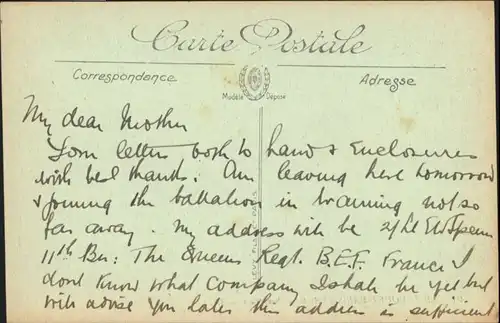 Carte Postale
Correspondance
Adresse
Modèle Déposé
My dear Mother
Your letter both to hand & enclosures
with best thanks. Am leaving here tomorrow
& joining the battalion in training not so
far away. My address will be 2/Lt
11th Bn: The Queens Regt. B.E.F. France I
dont know what company I shall be yet but
will advise you later this address is sufficient